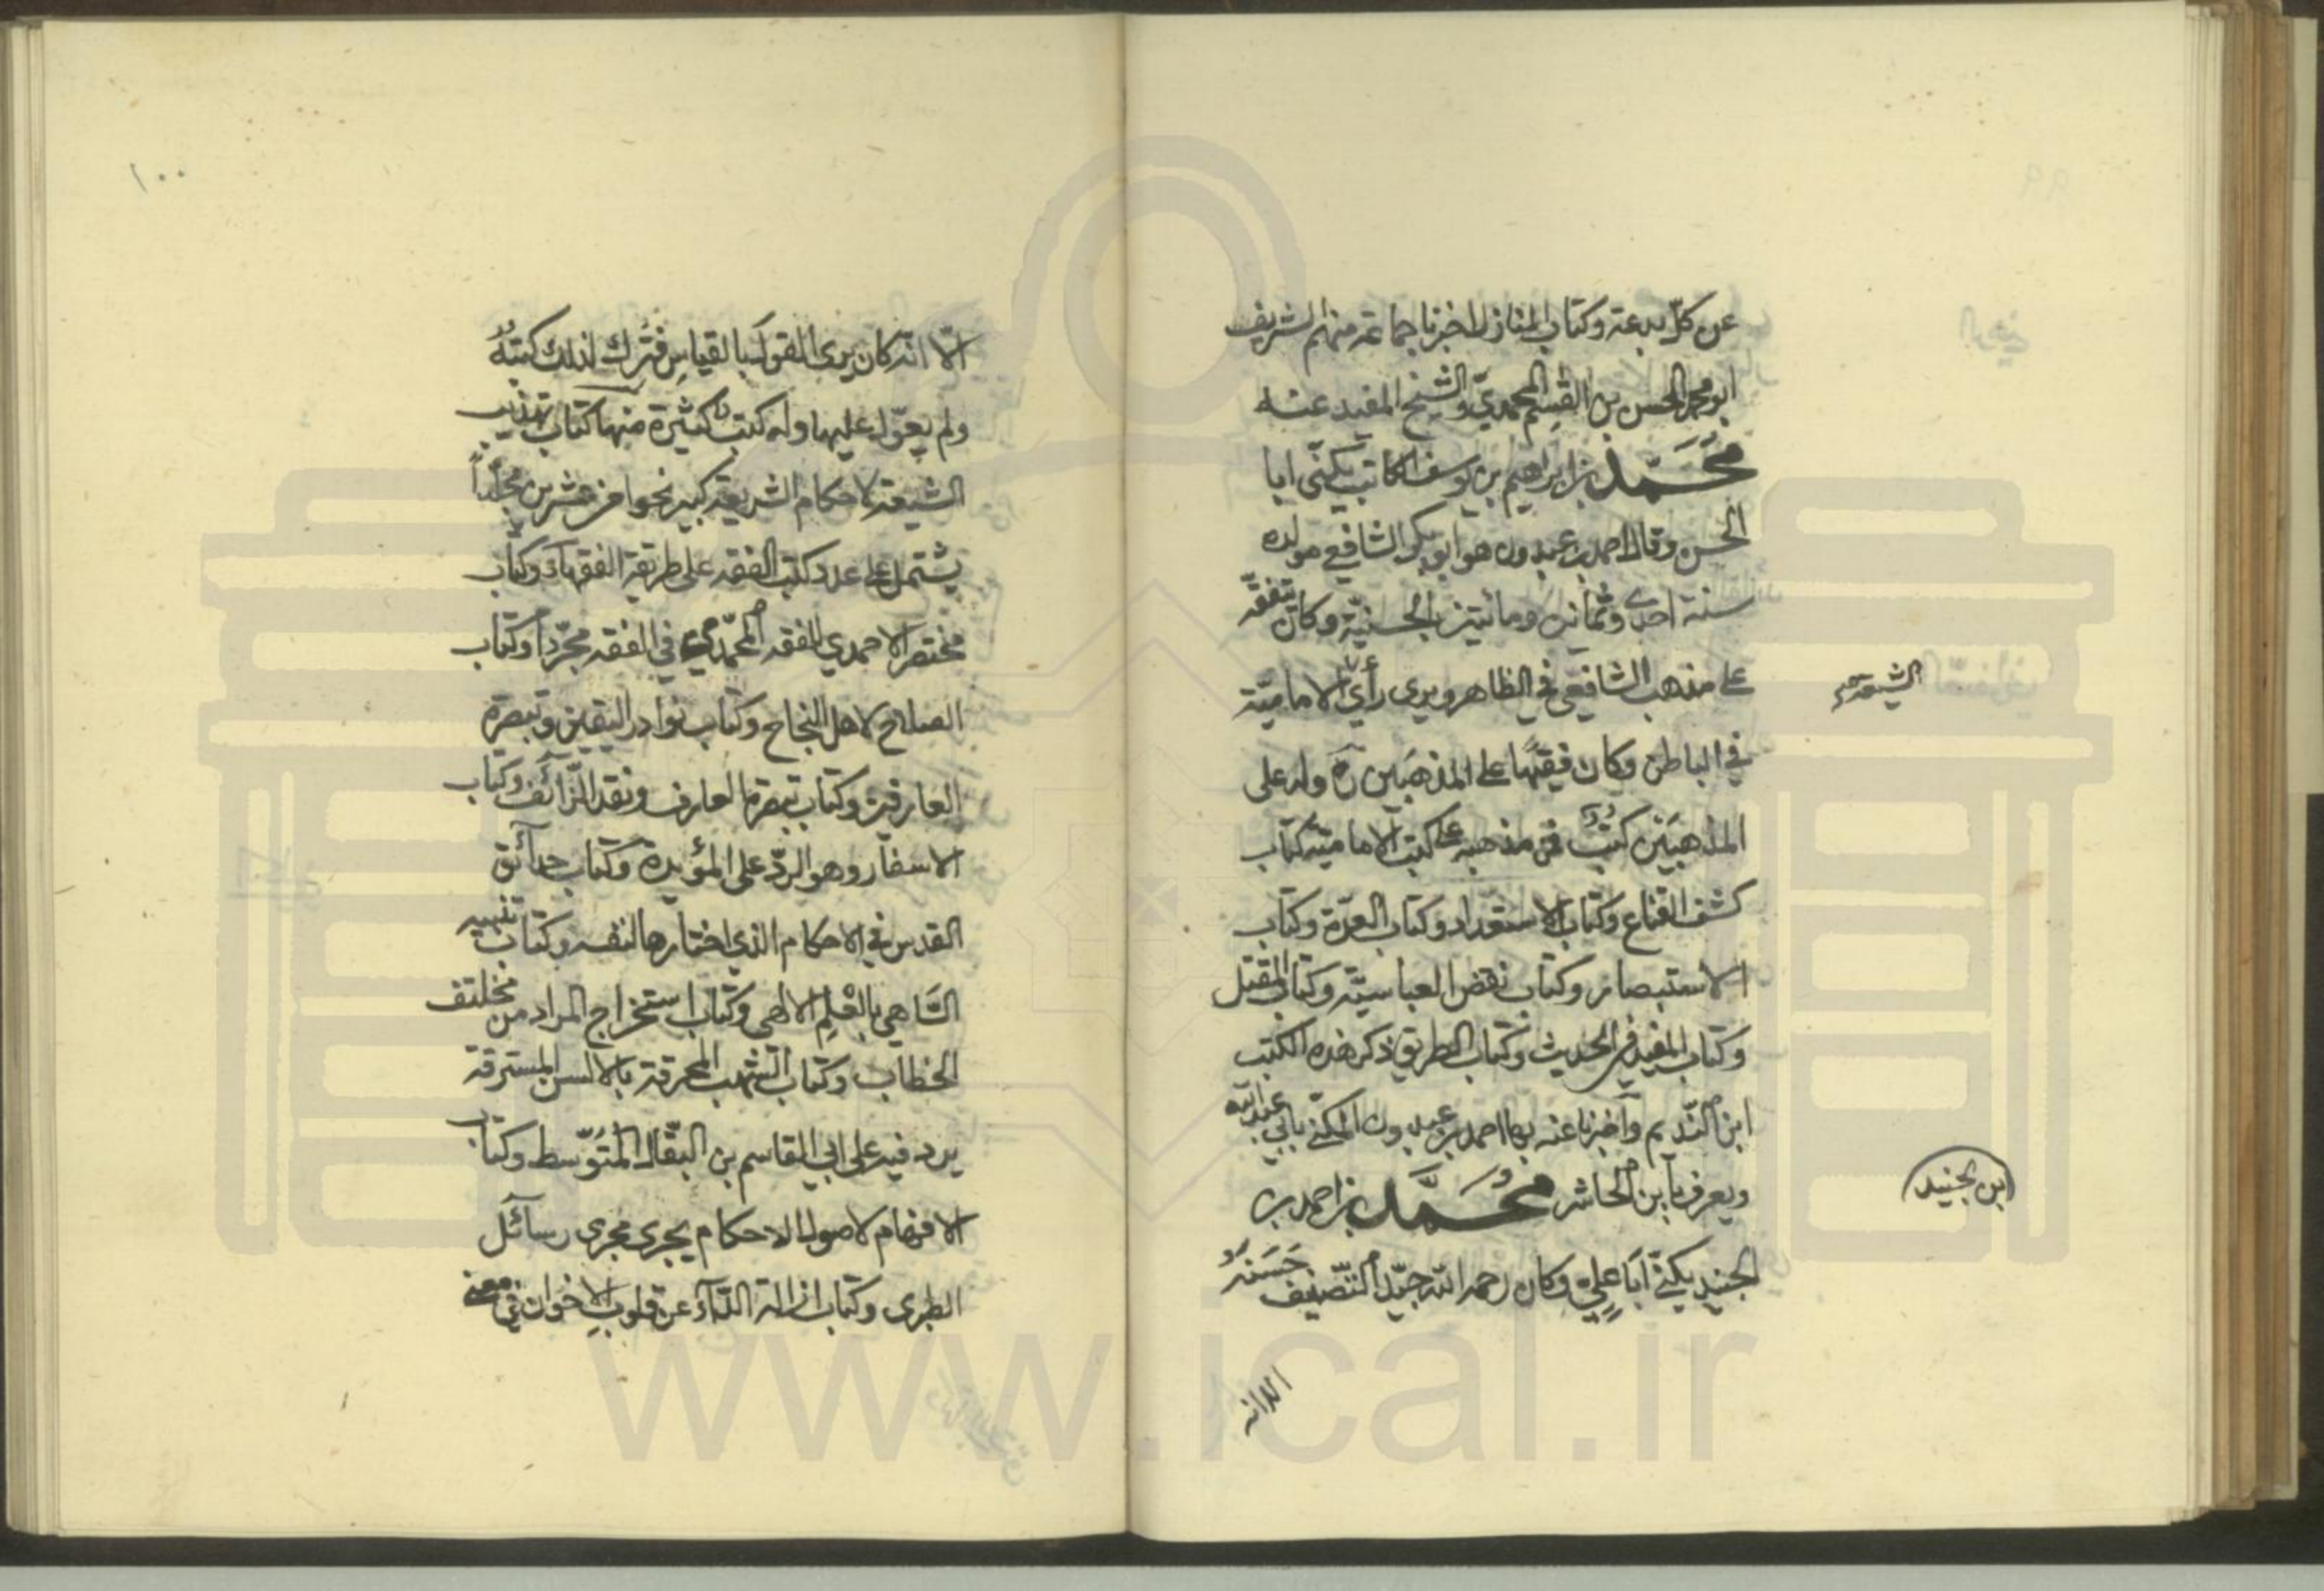 عن كلّ بدعة وكتاب المنازل اخبرنا جماعة منهم الشريف
ابو محمد الحسن بن القسم المحمديّ والشيخ المفيد عنه
محمّد بن ابراهيم بن يوسف الكاتب يكنّى ابا
الحسن وقال احمد بن عبدون هو ابو بكر الشافعي مولده
سنة احدى وثمانين ومائتين بالحسنيّة وكان يتفقّه
على مذهب الشافعي في الظاهر ويرى رأي الاماميّة
الشيعة
في الباطن وكان فقيهًا على المذهبين ره وله على
المذهبين كتبٌ فمن مذهبه على كتب الاماميّة كتاب
كشف القناع وكتاب الاستعداد وكتاب العدّة وكتاب
الاستبصار وكتاب نقض العباسيّة وكتاب المقتل
وكتاب المفيد في الحديث وكتاب الطريق ذكر هذه الكتب
ابن النديم وأخبرنا عنه بها احمد بن عبدون المكنّى بابي عبد الله
ويعرف بابن الحاشر محمّد بن احمد بن
ابن جنيد
الجنيد يكنّى ابا عليّ وكان رحمه الله جيّد التّصنيف حسنه
الا انه
١٠٠
الّا انّه كان يرى القول بالقياس فتُرك لذلك كتبهُ
ولم يعوّل عليها وله كتب كثيرة منها كتاب تهذيب
الشيعة لاحكام الشريعة كبير نحوا من عشرين مجلّداً
يشتمل على عدد كتب الفقه على طريقة الفقهاء وكتاب
مختصر الاحمدي للفقه المحمّدي في الفقه مجرّداً وكتاب
الصلاح لاهل النجاح وكتاب نوادر اليقين وتبصرة
العارفين وكتاب تبصرة العارف ونقد الزّائف وكتاب
الاسفار وهو الردّ على المؤبدة وكتاب حدائق
القدس في الاحكام الذي اختارها لنفسه وكتاب تنبيه
السّاهي بالعلم الالهي وكتاب استخراج المراد من مختلف
الخطاب وكتاب الشهب المحرقة بالالسن المسترقة
يرد فيه على ابي القاسم بن البقّال المتوسّط وكتاب
الافهام لاصول الاحكام يجري مجرى رسائل
الطبري وكتاب ازالة الدّاء عن قلوب الاخوان في معنى